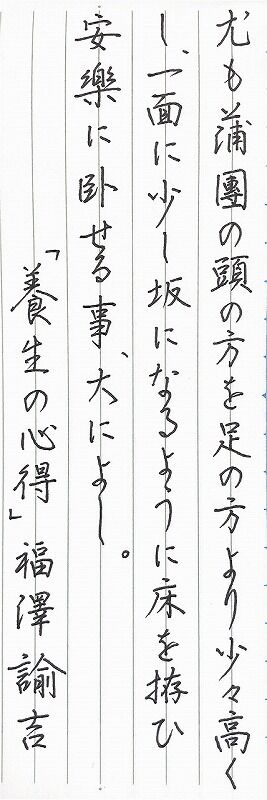 尤も蒲團の頭の方を足の方より少々高く
し、一面に少し坂になるように床を拵ひ
安樂に卧せる事、大によし。
「養生の心得」福澤諭吉